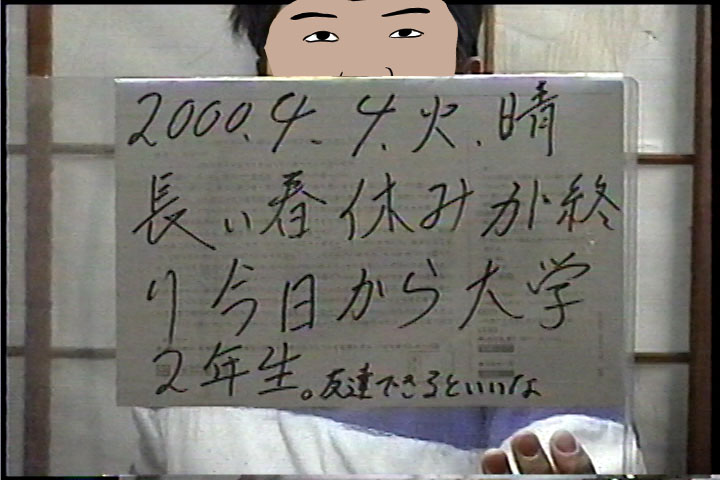 2000.4.4.火.晴
長い春休みが終
り今日から大学
2年生。友達できるといいな